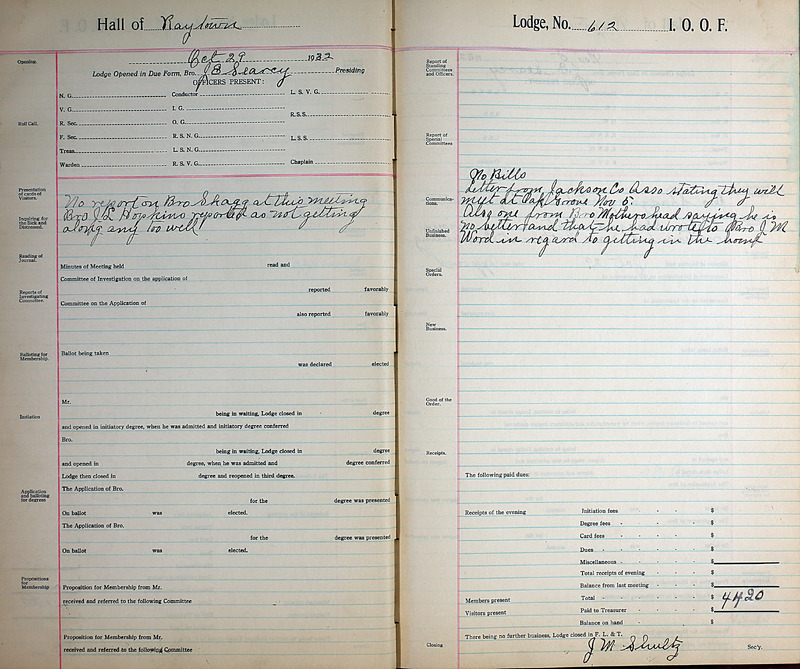 Hall of Raytown
Opening.
Oct 29 1932
Lodge Opened in Due Form, Bro. B Searcy Presiding
OFFICERS PRESENT:
Roll Call.
N. G. Conductor L. S. V. G.
V. G. I. G.
R. Sec. O. G. R.S.S.
F. Sec. R. S. N. G. L. S. S.
Treas. L. S. N. G.
Warden R. S. V. G. Chaplain
Presentation of cards of Visitors.
Inquiring for the Sick and Distressed.
No report on Bro Skagg at this meeting
Bro J E Hopkins reported as not getting
along any too well
Reading of Journal.
Minutes of Meeting held read and
Reports of Investigating Committee.
Committee of Investigation on the application of
reported favorably
Committee on the Application of
also reported favorably
Balloting for Membership.
Ballot being taken
was declared elected
Initiation
Mr.
being in waiting, Lodge closed in degree
and opened in initiatory degree, when he was admitted and initiatory degree conferred
Bro.
being in waiting, Lodge closed in degree
and opened in degree, when he was admitted and degree conferred
Lodge then closed in degree and reopened in third degree.
Application and balloting for degrees
The Application of Bro.
for the degree was presented
On ballot was elected.
The Application of Bro.
for the degree was presented
On ballot was elected.
Propositions for Membership
Proposition for Membership from Mr.
received and referred to the following Committee
Proposition for Membership from Mr.
received and referred to the following Committee
Lodge, No. 612 I. O. O. F.
Report of Standing Committees and Officers.
Report of Special Committees
No Bills
Communications.
Letter from Jackson Co. Asso stating they will
meet at Oak Grove Nov 5.
Also one from Bro Mothershead saying he is
Unfinished Business.
no better and that he had wrote to Bro J. M
Word in regard to getting in the home
Special Orders.
New Business.
Good of the Order.
Receipts.
The following paid dues:
Receipts of the evening Initiation fees $
Degree fees $
Card fees $
Dues $
Miscellaneous $
Total receipts of evening $
Balance from last meeting $
Members present Total $ 44 20
Visitors present Paid to Treasurer $
Balance on hand $
Closing
There being no further business, Lodge closed in F. L. & T.
J M Shultz Sec'y.